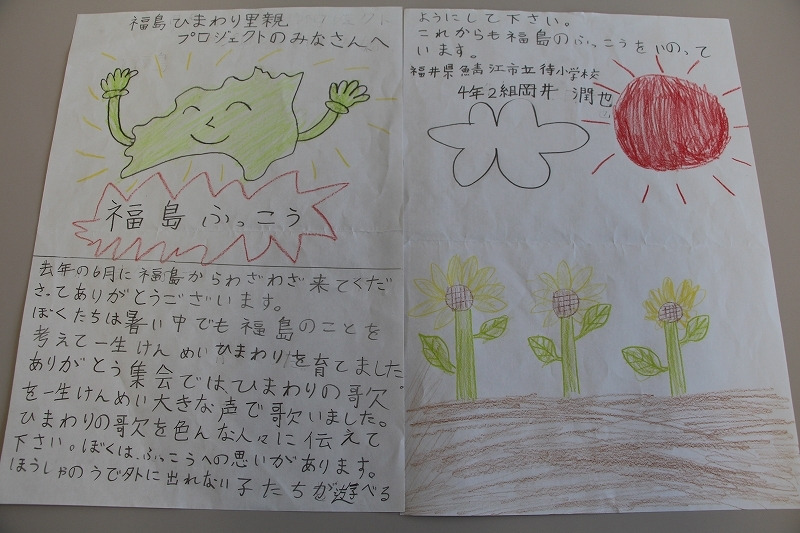 福島ひまわり里親
プロジェクトのみなさんへ
福島ふっこう
去年の6月に福島からわざわざ来てくだ
さってありがとうございます。
ぼくたちは暑い中でも福島のことを
考えて一生けんめいひまわりを育てました。
ありがとう集会ではひまわりの歌
を一生けんめい大きな声で歌いました。
ひまわりの歌を色んな人々に伝えて
下さい。ぼくは、ふっこうへの思いがあります。
ほうしゃのうで外に出れない子たちが遊べる
ようにして下さい。
これからも福島のふっこうをいのって
います。
福井県鯖江市立待小学校
4年2組岡井 潤也